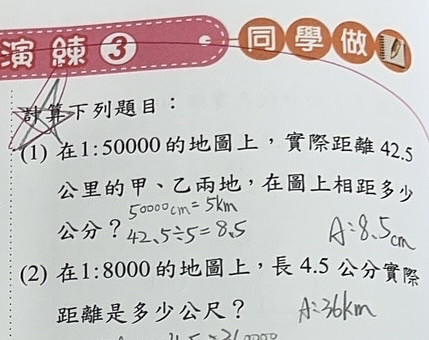 演練3 同學做
計算下列題目：
(1) 在1:50000的地圖上，實際距離42.5
公里的甲、乙兩地，在圖上相距多少
50000cm=5km
公分？42.5÷5=8.5 A:8.5cm
(2) 在1:8000的地圖上，長4.5公分實際
距離是多少公尺？ A:36km